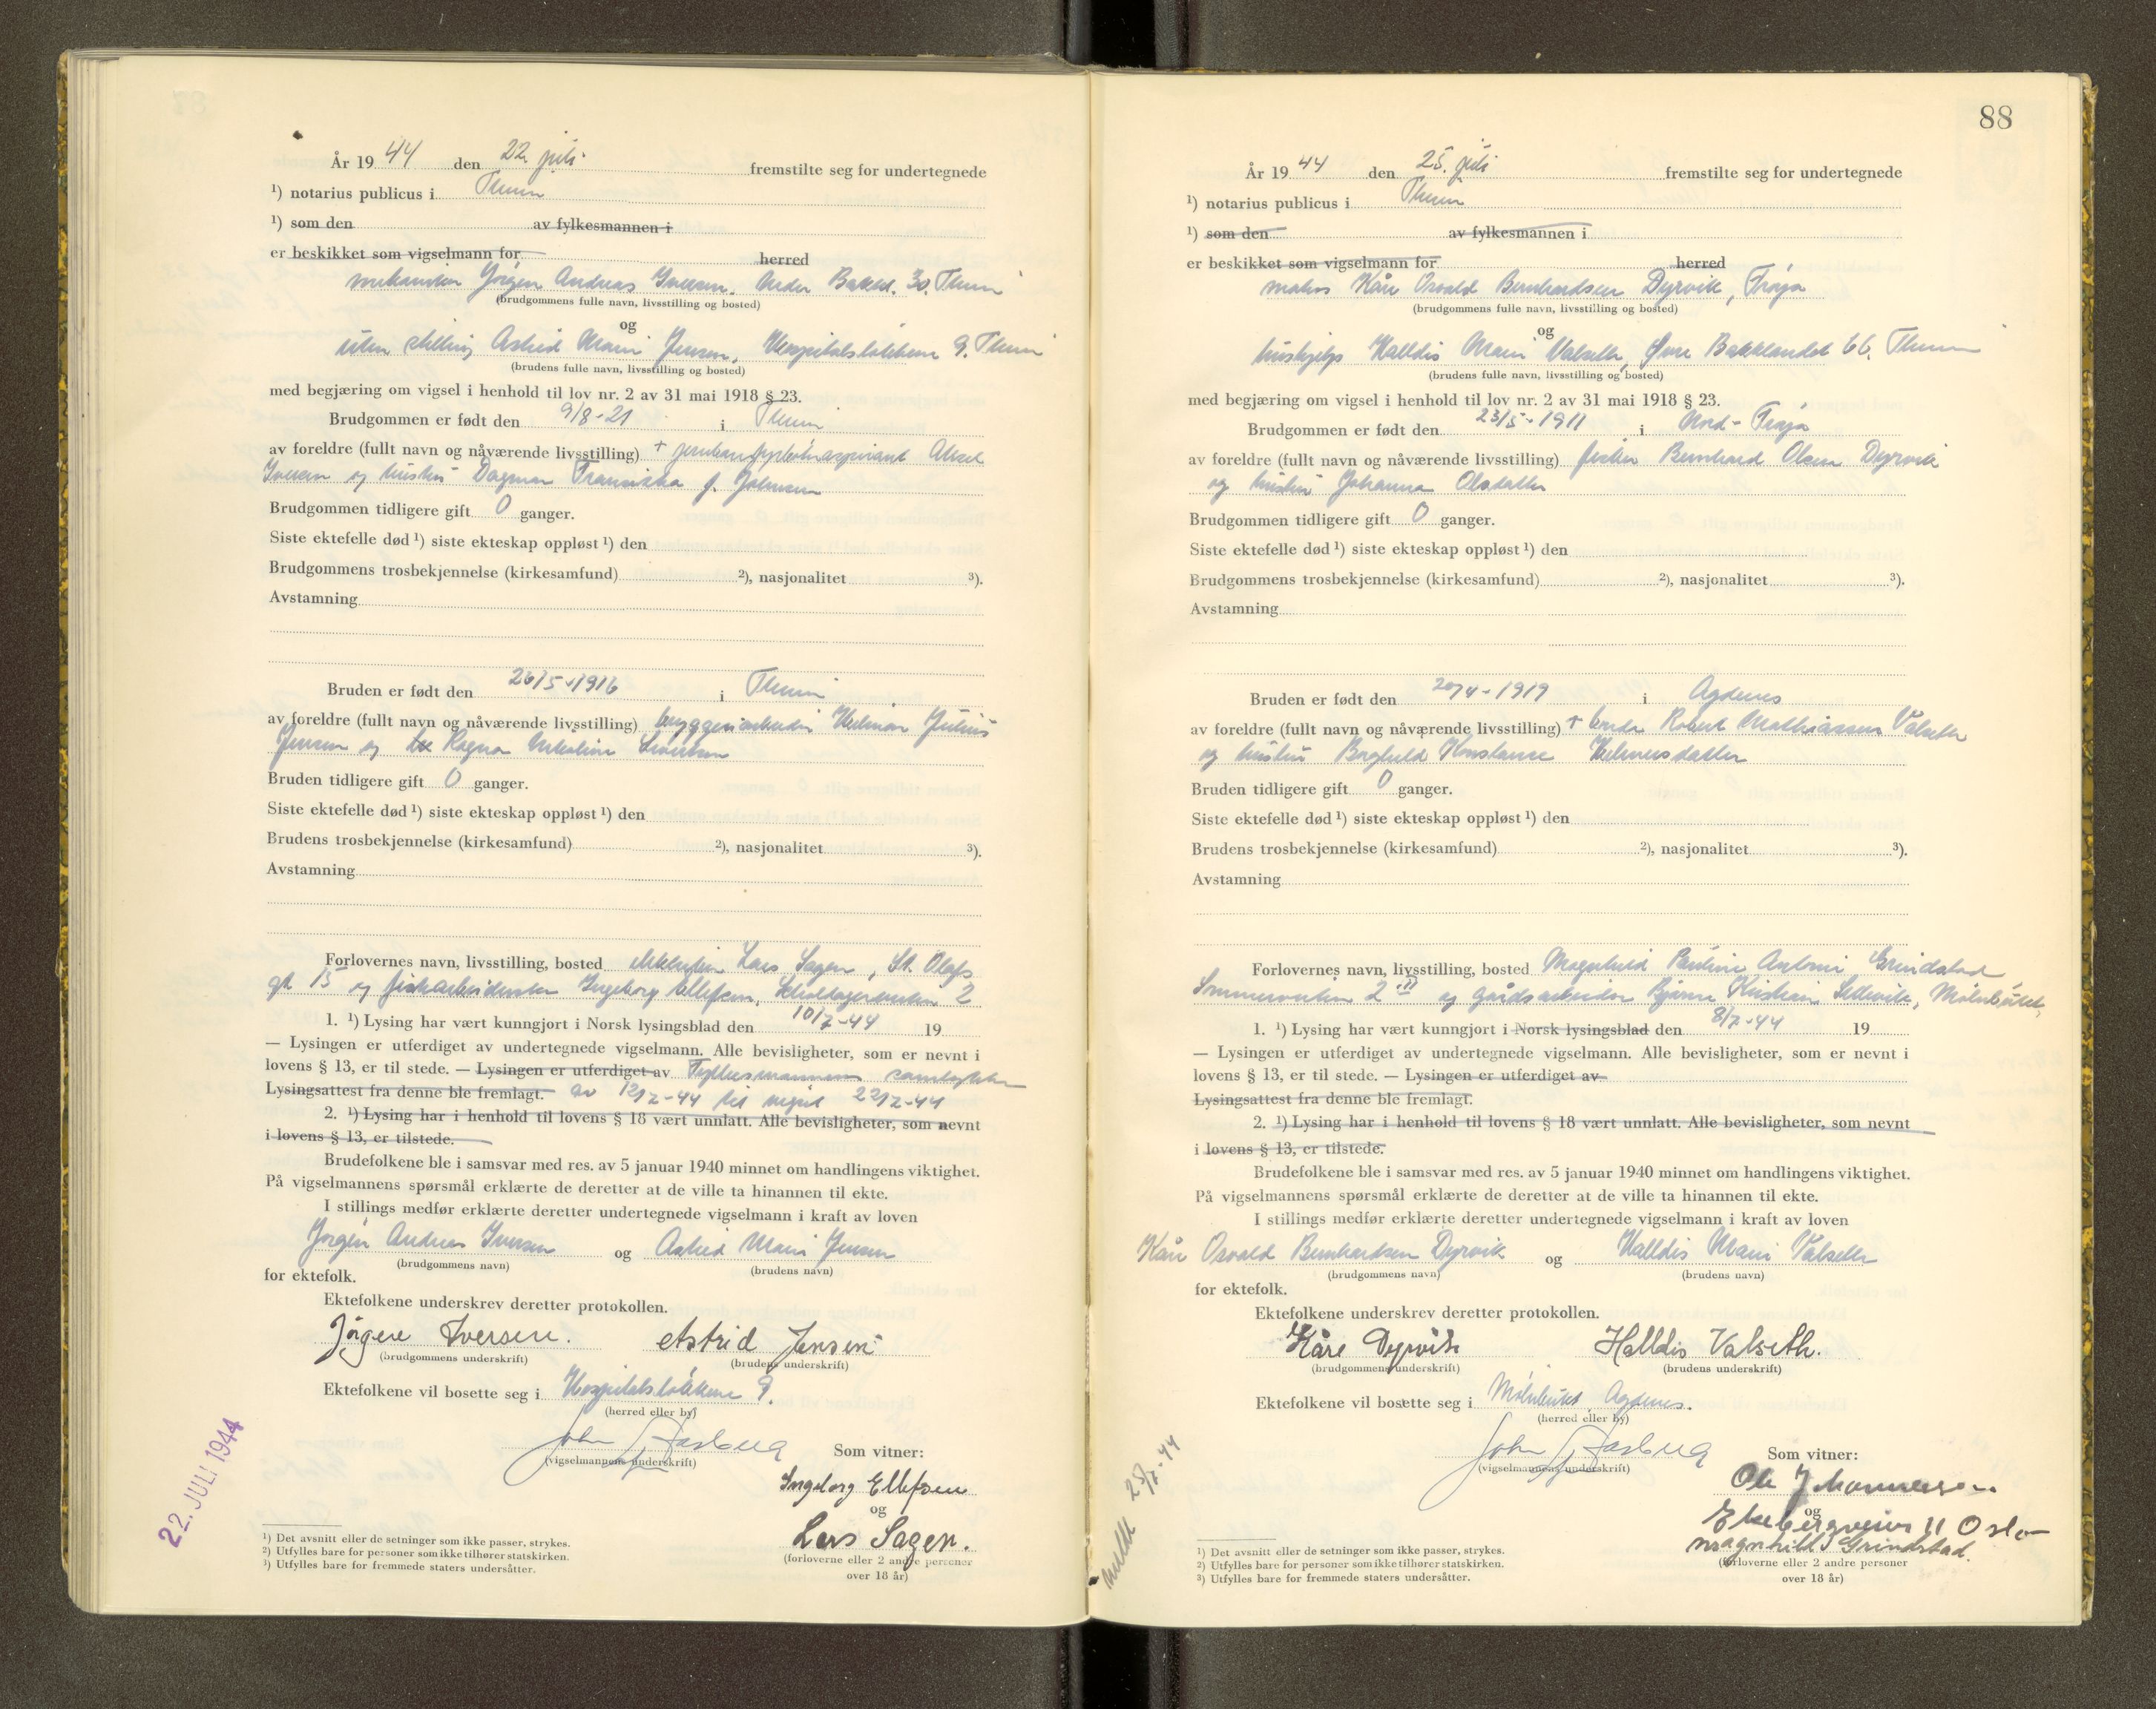 År 19 44 den 22. juli fremstilte seg for undertegnede
¹) notarius publicus i Thium
¹) som den av fylkesmannen i
er beskikket som vigselmann for herred
mekaniker Jörgen Andreas Iversen. Nedre Bakkl. 30. Thium
(brudgommens fulle navn, livsstilling og bosted)
og
uten stilling Astrid Marie Jensen, Hospitalsløkkene 9. Thium
(brudens fulle navn, livsstilling og bosted)
med begjæring om vigsel i henhold til lov nr. 2 av 31 mai 1918 § 23.
Brudgommen er født den 9/8-21 i Thium
av foreldre (fullt navn og nåværende livsstilling) + Aksel
Iversen og hustru Dagmar Franciska f. Johnsen
Brudgommen tidligere gift 0 ganger.
Siste ektefelle død ¹) siste ekteskap oppløst ¹) den
Brudgommens trosbekjennelse (kirkesamfund) ²), nasjonalitet ³).
Avstamning
Bruden er født den 26/5-1916 i Thium
av foreldre (fullt navn og nåværende livsstilling) bryggeriarbeider Helmar Julius
Jensen og Ragna Nikoline
Bruden tidligere gift 0 ganger.
Siste ektefelle død ¹) siste ekteskap oppløst ¹) den
Brudens trosbekjennelse (kirkesamfund) ²), nasjonalitet ³).
Avstamning
Forlovernes navn, livsstilling, bosted Lars Sagen, St. Olafs
gt 15 og Ingeborg Ellefsen, 2
1. ¹) Lysing har vært kunngjort i Norsk lysingsblad den 10/7-44 19
— Lysingen er utferdiget av undertegnede vigselmann. Alle bevisligheter, som er nevnt i
lovens § 13, er til stede. — Lysingen er utferdiget av Fylkesmannens samtykke
Lysingsattest fra denne ble fremlagt. av 12/7-44 til vigsel 22/7-44
2. ¹) Lysing har i henhold til lovens § 18 vært unnlatt. Alle bevisligheter, som nevnt
i lovens § 13, er tilstede.
Brudefolkene ble i samsvar med res. av 5 januar 1940 minnet om handlingens viktighet.
På vigselmannens spørsmål erklærte de deretter at de ville ta hinannen til ekte.
I stillings medfør erklærte deretter undertegnede vigselmann i kraft av loven
Jørgen Andreas Iversen og Astrid Marie Jensen
(brudgommens navn) (brudens navn)
for ektefolk.
Ektefolkene underskrev deretter protokollen.
Jörgen Iversen. Astrid Jensen
(brudgommens underskrift) (brudens underskrift)
Ektefolkene vil bosette seg i Hospitalsløkkene 9.
(herred eller by)
John Aasberg
(vigselmannens underskrift) Som vitner:
Ingeborg Ellefsen
og
Lars Sagen.
(forloverne eller 2 andre personer
over 18 år)
22. JULI 1944
¹) Det avsnitt eller de setninger som ikke passer, strykes.
²) Utfylles bare for personer som ikke tilhører statskirken.
³) Utfylles bare for fremmede staters undersåtter.
88
År 19 44 den 25. juli fremstilte seg for undertegnede
¹) notarius publicus i Thium
¹) som den av fylkesmannen i
er beskikket som vigselmann for herred
matros Kåre Osvald Bernhardsen Dyrvik, Frøya
(brudgommens fulle navn, livsstilling og bosted)
og
hushjelp Halldis Marie Valseth, Øvre Bakklandet 66. Thium
(brudens fulle navn, livsstilling og bosted)
med begjæring om vigsel i henhold til lov nr. 2 av 31 mai 1918 § 23.
Brudgommen er født den 23/5-1911 i Nord-Frøya
av foreldre (fullt navn og nåværende livsstilling) fisker Bernhard Olsen Dyrvik
og hustru Johanna Olsdatter
Brudgommen tidligere gift 0 ganger.
Siste ektefelle død ¹) siste ekteskap oppløst ¹) den
Brudgommens trosbekjennelse (kirkesamfund) ²), nasjonalitet ³).
Avstamning
Bruden er født den 20/4-1919 i Agdenes
av foreldre (fullt navn og nåværende livsstilling) + bonde Robert Mathiassen Valseth
og hustru Borghild Konstanse Helmersdatter
Bruden tidligere gift 0 ganger.
Siste ektefelle død ¹) siste ekteskap oppløst ¹) den
Brudens trosbekjennelse (kirkesamfund) ²), nasjonalitet ³).
Avstamning
Forlovernes navn, livsstilling, bosted Magnhild Pauline Antonie Grindstad
2 II og gårdsarbeider Bjarne Kristian Sellevik, Mølnbukt,
1. ¹) Lysing har vært kunngjort i Norsk lysingsblad den 8/7-44 19
— Lysingen er utferdiget av undertegnede vigselmann. Alle bevisligheter, som er nevnt i
lovens § 13, er til stede. — Lysingen er utferdiget av
Lysingsattest fra denne ble fremlagt.
2. ¹) Lysing har i henhold til lovens § 18 vært unnlatt. Alle bevisligheter, som nevnt
i lovens § 13, er tilstede.
Brudefolkene ble i samsvar med res. av 5 januar 1940 minnet om handlingens viktighet.
På vigselmannens spørsmål erklærte de deretter at de ville ta hinannen til ekte.
I stillings medfør erklærte deretter undertegnede vigselmann i kraft av loven
Kåre Osvald Bernhardsen Dyrvik og Halldis Marie Valseth
(brudgommens navn) (brudens navn)
for ektefolk.
Ektefolkene underskrev deretter protokollen.
Kåre Dyrvik Halldis Valseth.
(brudgommens underskrift) (brudens underskrift)
Ektefolkene vil bosette seg i Mølnbukt, Agdenes.
(herred eller by)
John Aasberg
(vigselmannens underskrift) Som vitner:
Ole J Johannesen
og
Ekebergveien 11 Oslo
Magnhild Grindstad.
(forloverne eller 2 andre personer
over 18 år)
meldt 25/7-44
¹) Det avsnitt eller de setninger som ikke passer, strykes.
²) Utfylles bare for personer som ikke tilhører statskirken.
³) Utfylles bare for fremmede staters undersåtter.